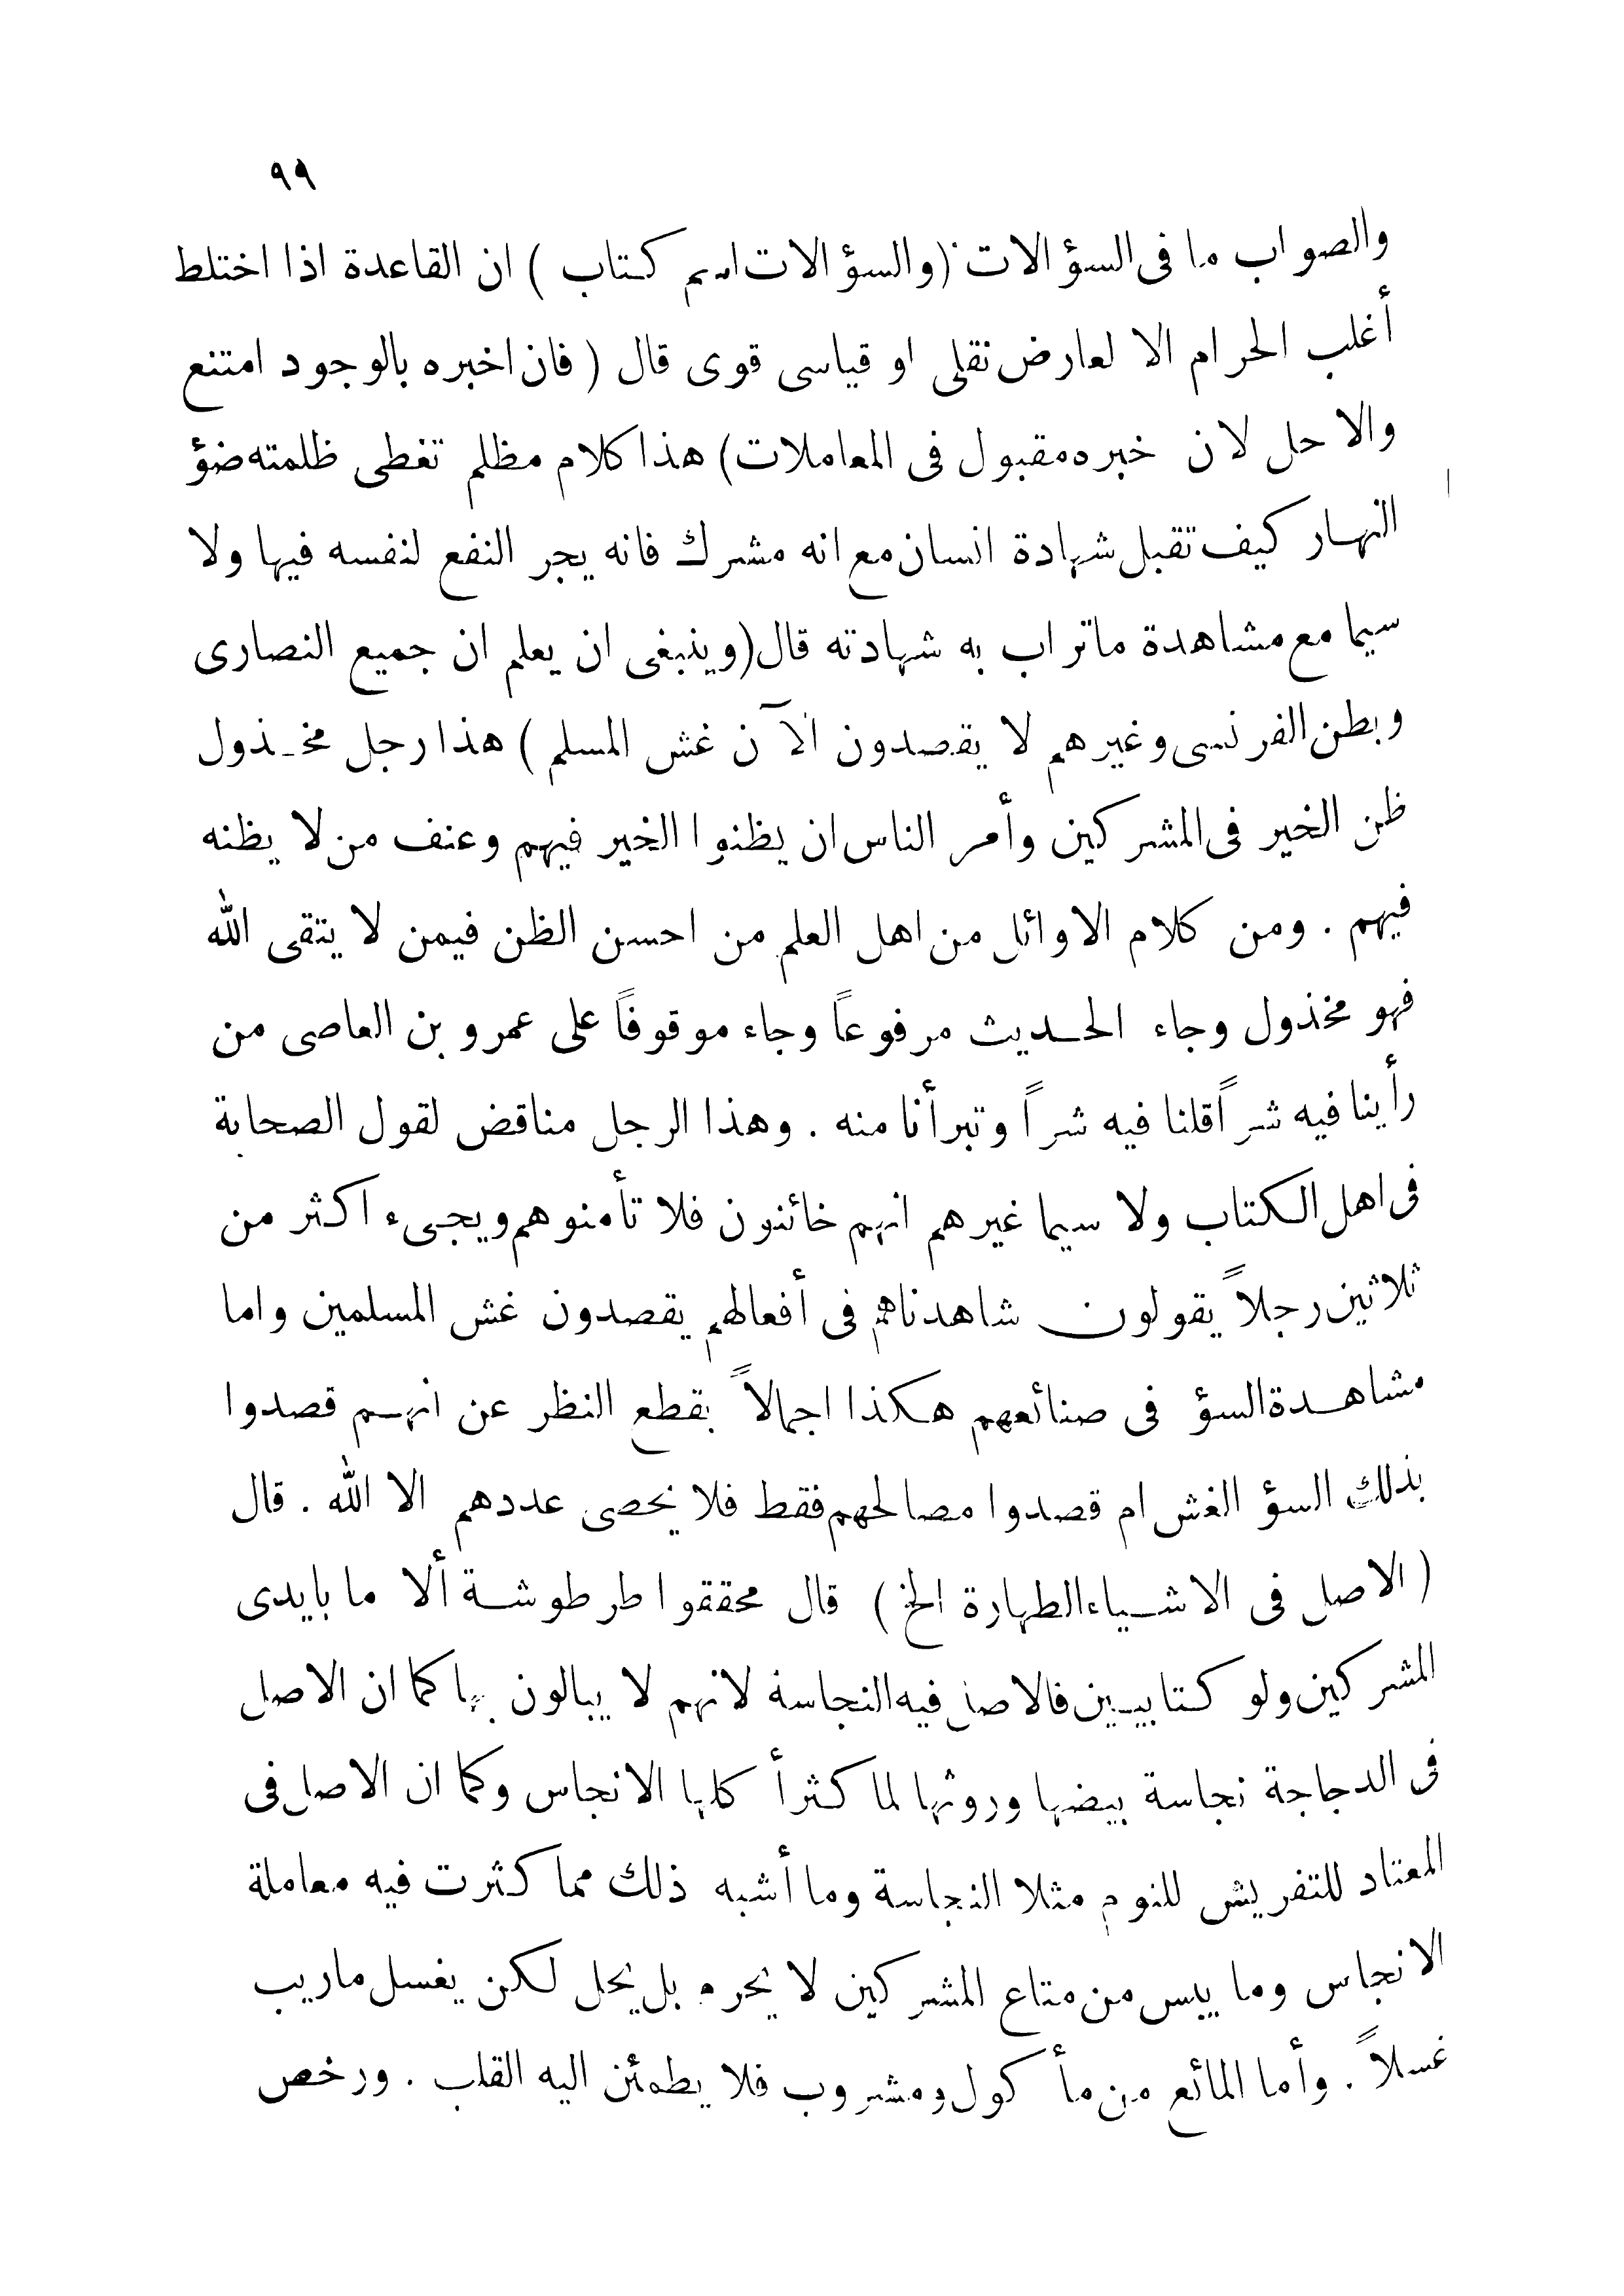 ٩٩
والصواب ما فى السؤالات (والسؤالات اسم كتاب ) ان القاعدة اذا اختلط
أغلب الحرام الا لعارض نقلى او قياسى قوى قال ( فان اخبره بالوجود امتنع
والا حل لان خبره مقبول فى المعاملات) هذا كلام مظلم تغطى ظلمته ضؤ
النهار كيف تقبل شهادة انسان مع انه مشرك فانه يجر النفع لنفسه فيها ولا
سيما مع مشاهدة ما تراب به شهادته قال (وينبغى ان يعلم ان جميع النصارى
وبطن الفرنسى وغيرهم لا يقصدون الآن غش المسلم ) هذا رجل مخذول
ظن الخير فى المشركين وأمر الناس ان يظنوا الخير فيهم وعنف من لا يظنه
فيهم . ومن كلام الاوائل من اهل العلم من احسن الظن فيمن لا يتقى الله
فهو مخذول وجاء الحديث مرفوعاً وجاء موقوفاً على عمرو بن العاصى من
رأينا فيه شراً قلنا فيه شراً وتبرأنا منه . وهذا الرجل مناقض لقول الصحابة
فى اهل الكتاب ولا سيما غيرهم انهم خائنون فلا تأمنوهم ويجىء اكثر من
ثلاثين رجلاً يقولون شاهدناهم فى أفعالهم يقصدون غش المسلمين واما
مشاهدة السؤ فى صنائعهم هكذا اجمالاً بقطع النظر عن انهم قصدوا
بذلك السؤ الغش ام قصدوا مصالحهم فقط فلا يحصى عددهم الا الله . قال
( الاصل فى الاشياء الطهارة الخ ) قال محققوا طرطوشة ألا ما بايدى
المشركين ولو كتابيين فالاصل فيه النجاسة لانهم لا يبالون بها كما ان الاصل
فى الدجاجة نجاسة بيضها وروثها لما كثر أكلها الانجاس وكما ان الاصل فى
المعتاد للتفريش للنوم مثلا النجاسة وما أشبه ذلك مما كثرت فيه معاملة
الانجاس وما يبس من متاع المشركين لا يحرم بل يحل لكن يغسل ما ريب
غسلاً . وأما المائع من مأكول ومشروب فلا يطمئن اليه القلب . ورخص